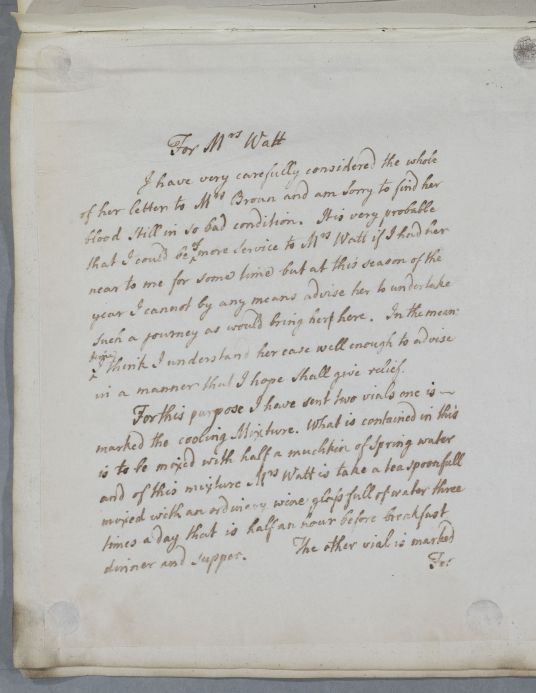 For Mrs Watt
I have very carefully considered the whole
of her letter to Mrs Broun and am sorry to find her
blood still in so bad condition. It is very probable
that I could be of more service to Mrs Watt if I had her
near to me for some time but at this season of the
year I cannot by any means advise her to undertake
such a journey as would bring her here. In the mean:
time I think I understand her case well enough to advise
in a manner that I hope shall give relief.
For this purpose I have sent two vials one is
marked the cooling Mixture. What is contained in this
is to be mixed with half a mutchkin of Spring water
and of this mixture Mrs Watt is take a teaspoonfull
mixed with an ordinery wine glass full of water three
times a day that is half an hour before breakfast
dinner and supper. The other vial is marked